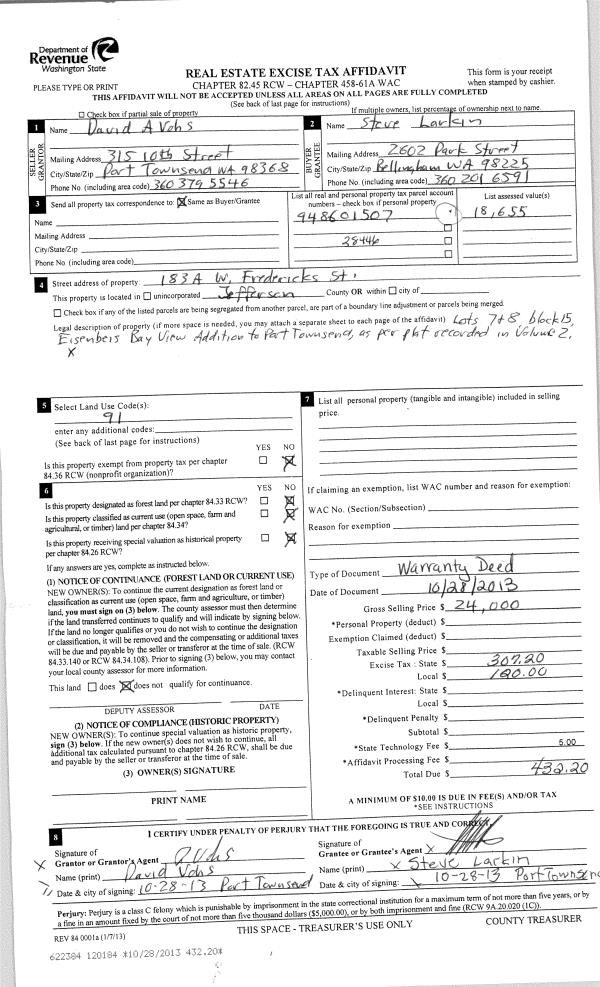 Department of
Revenue
Washington State
PLEASE TYPE OR PRINT
REAL ESTATE EXCISE TAX AFFIDAVIT
CHAPTER 82.45 RCW – CHAPTER 458-61A WAC
This form is your receipt
when stamped by cashier.
THIS AFFIDAVIT WILL NOT BE ACCEPTED UNLESS ALL AREAS ON ALL PAGES ARE FULLY COMPLETED
(See back of last page for instructions)
Check box if partial sale of property
If multiple owners, list percentage of ownership next to name.
1 Name David A Vohs
SELLER GRANTOR
Mailing Address 315 10th Street
City/State/Zip Port Townsend WA 98368
Phone No. (including area code) 360 379 5546
2 Name Steve Larkin
BUYER GRANTEE
Mailing Address 2602 Park Street
City/State/Zip Bellingham WA 98225
Phone No. (including area code) 360 201 6591
3 Send all property tax correspondence to: Same as Buyer/Grantee
Name
Mailing Address
City/State/Zip
Phone No. (including area code)
List all real and personal property tax parcel account
numbers – check box if personal property
948601507
28446
List assessed value(s)
18,655
4 Street address of property: 183A W. Fredericks St.
This property is located in unincorporated Jefferson County OR within city of
Check box if any of the listed parcels are being segregated from another parcel, are part of a boundary line adjustment or parcels being merged.
Legal description of property (if more space is needed, you may attach a separate sheet to each page of the affidavit) Lots 7+8, block 15,
Eisenbeis Bay View Addition to Port Townsend, as per plat recorded in Volume 2,
X
5 Select Land Use Code(s):
91
enter any additional codes:
(See back of last page for instructions)
YES NO
Is this property exempt from property tax per chapter
84.36 RCW (nonprofit organization)?
6 YES NO
Is this property designated as forest land per chapter 84.33 RCW?
Is this property classified as current use (open space, farm and
agricultural, or timber) land per chapter 84.34?
Is this property receiving special valuation as historical property
per chapter 84.26 RCW?
If any answers are yes, complete as instructed below.
(1) NOTICE OF CONTINUANCE (FOREST LAND OR CURRENT USE)
NEW OWNER(S): To continue the current designation as forest land or
classification as current use (open space, farm and agriculture, or timber)
land, you must sign on (3) below. The county assessor must then determine
if the land transferred continues to qualify and will indicate by signing below.
If the land no longer qualifies or you do not wish to continue the designation
or classification, it will be removed and the compensating or additional taxes
will be due and payable by the seller or transferor at the time of sale. (RCW
84.33.140 or RCW 84.34.108). Prior to signing (3) below, you may contact
your local county assessor for more information.
This land does does not qualify for continuance.
DEPUTY ASSESSOR DATE
(2) NOTICE OF COMPLIANCE (HISTORIC PROPERTY)
NEW OWNER(S): To continue special valuation as historic property,
sign (3) below. If the new owner(s) does not wish to continue, all
additional tax calculated pursuant to chapter 84.26 RCW, shall be due
and payable by the seller or transferor at the time of sale.
(3) OWNER(S) SIGNATURE
PRINT NAME
7 List all personal property (tangible and intangible) included in selling
price.
If claiming an exemption, list WAC number and reason for exemption:
WAC No. (Section/Subsection)
Reason for exemption
Type of Document Warranty Deed
Date of Document 10/28/2013
Gross Selling Price $ 24,000
*Personal Property (deduct) $
Exemption Claimed (deduct) $
Taxable Selling Price $
Excise Tax : State $ 307.20
Local $ 120.00
*Delinquent Interest: State $
Local $
*Delinquent Penalty $
Subtotal $
*State Technology Fee $ 5.00
*Affidavit Processing Fee $
Total Due $ 432.20
A MINIMUM OF $10.00 IS DUE IN FEE(S) AND/OR TAX
*SEE INSTRUCTIONS
8 I CERTIFY UNDER PENALTY OF PERJURY THAT THE FOREGOING IS TRUE AND CORRECT.
X Signature of
Grantor or Grantor's Agent D Vohs
Name (print) David Vohs
Date & city of signing: 10-28-13 Port Townsend
Signature of
Grantee or Grantee's Agent X
Name (print) X Steve Larkin
Date & city of signing: X 10-28-13 Port Townsend
Perjury: Perjury is a class C felony which is punishable by imprisonment in the state correctional institution for a maximum term of not more than five years, or by
a fine in an amount fixed by the court of not more than five thousand dollars ($5,000.00), or by both imprisonment and fine (RCW 9A.20.020 (1C)).
REV 84 0001a (1/7/13)
THIS SPACE - TREASURER'S USE ONLY
COUNTY TREASURER
622384 120184 *10/28/2013 432.20*